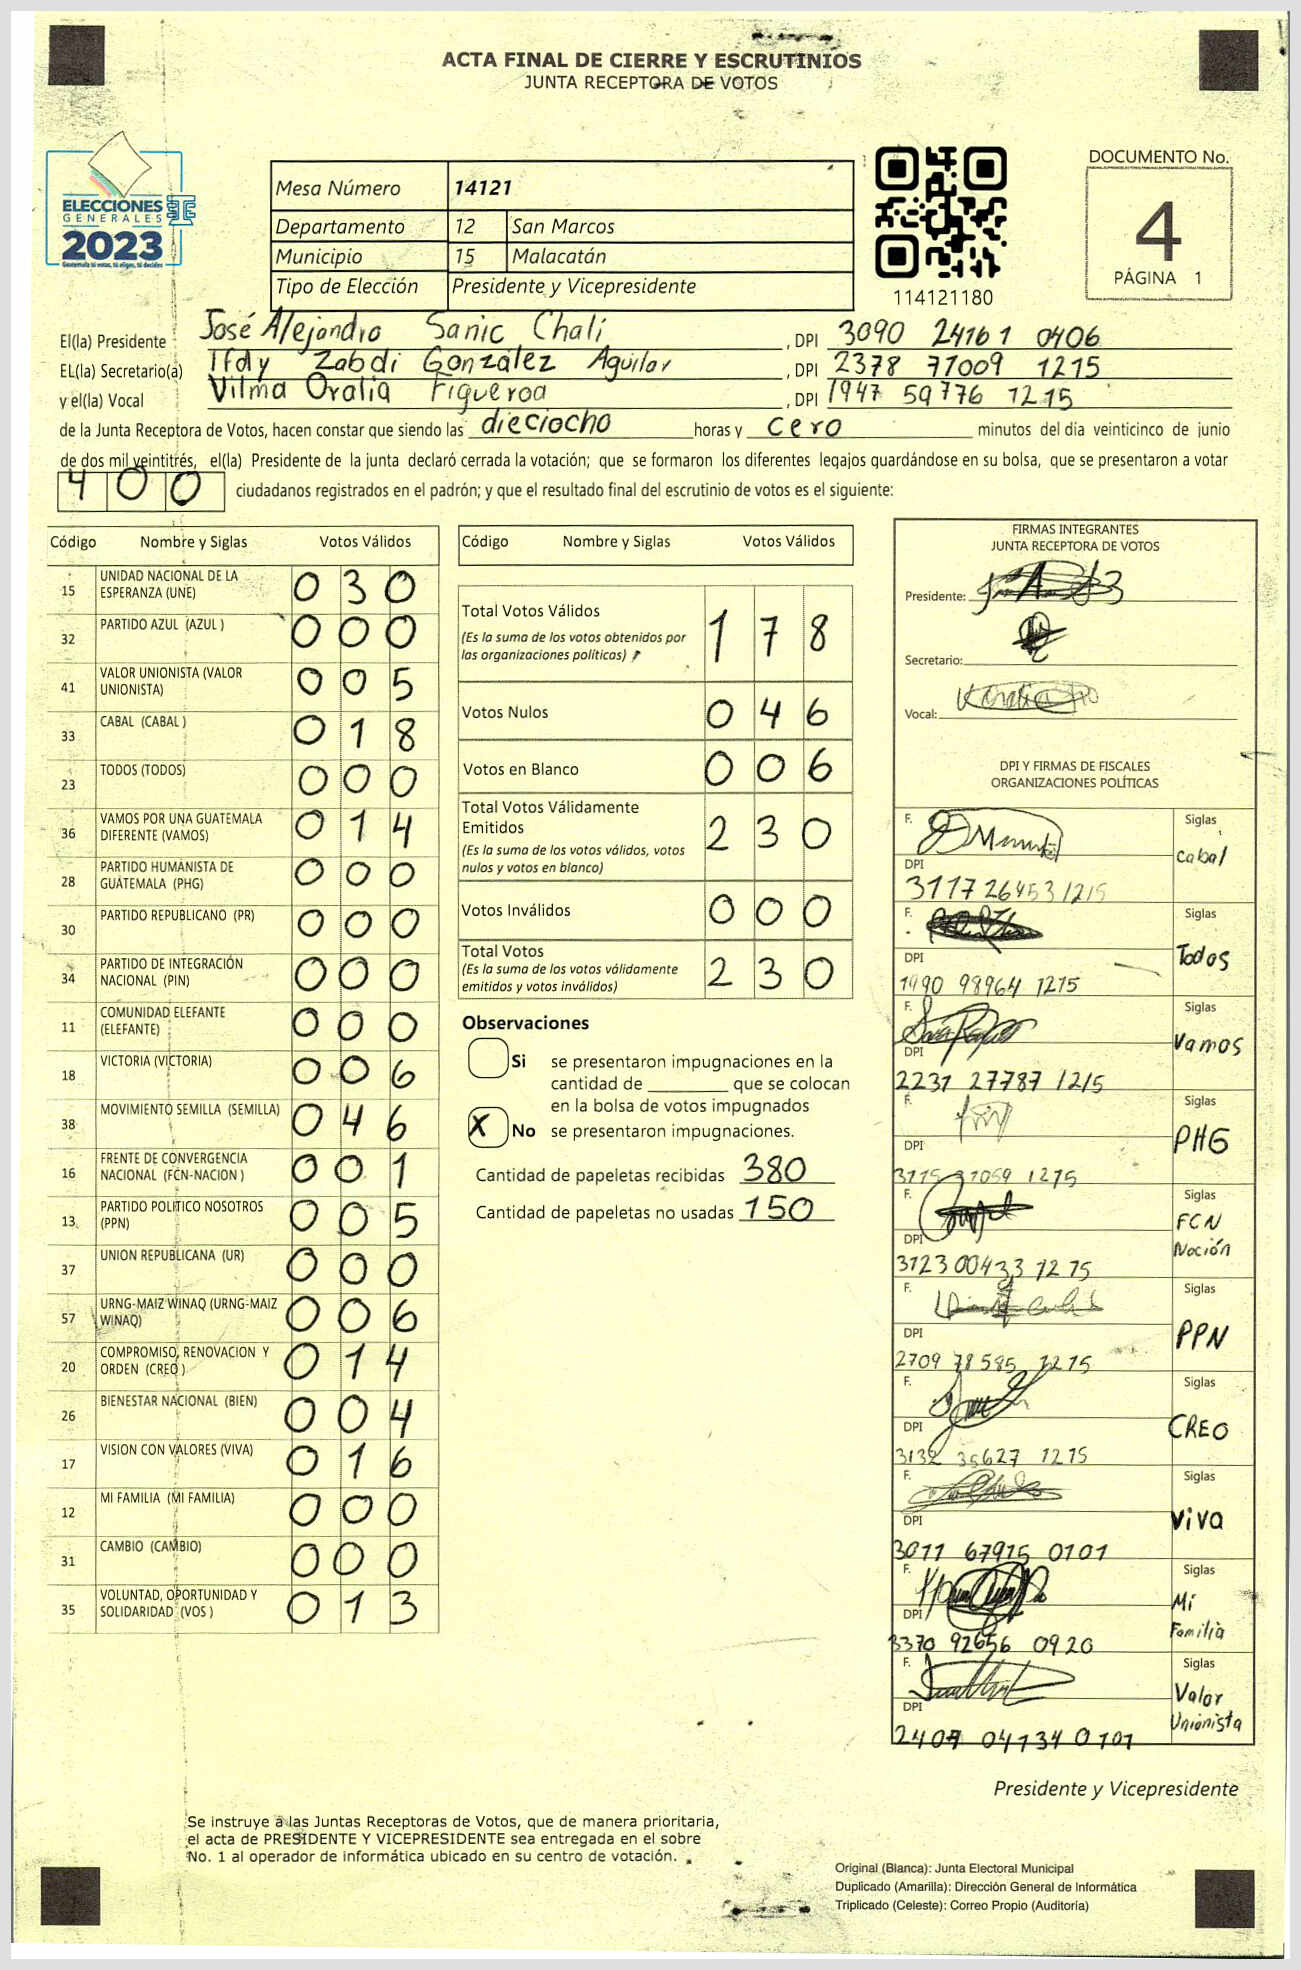 ACTA FINAL DE CIERRE Y ESCRUTINIOS
JUNTA RECEPTORA DE VOTOS
ELECCIONES
GENERALES
2023
Guatemala tú votas, tú eliges, tú decides
Mesa Número 14121
Departamento 12 San Marcos
Municipio 15 Malacatán
Tipo de Elección Presidente y Vicepresidente
114121180
DOCUMENTO No.
4
PÁGINA 1
El(la) Presidente José Alejandro Sanic Chalí , DPI 3090 24161 0406
EL(la) Secretario(a) Zabdi González Aguilar , DPI 2378 77009 1215
y el(la) Vocal Vilma Oralia Figueroa , DPI 1947 59776 1215
de la Junta Receptora de Votos, hacen constar que siendo las dieciocho horas y cero minutos del día veinticinco de junio
de dos mil veintitrés, el(la) Presidente de la junta declaró cerrada la votación; que se formaron los diferentes legajos guardándose en su bolsa, que se presentaron a votar
400 ciudadanos registrados en el padrón; y que el resultado final del escrutinio de votos es el siguiente:
Código Nombre y Siglas Votos Válidos
15 UNIDAD NACIONAL DE LA ESPERANZA (UNE) 030
32 PARTIDO AZUL (AZUL ) 000
41 VALOR UNIONISTA (VALOR UNIONISTA) 005
33 CABAL (CABAL ) 018
23 TODOS (TODOS) 000
36 VAMOS POR UNA GUATEMALA DIFERENTE (VAMOS) 014
28 PARTIDO HUMANISTA DE GUATEMALA (PHG) 000
30 PARTIDO REPUBLICANO (PR) 000
34 PARTIDO DE INTEGRACIÓN NACIONAL (PIN) 000
11 COMUNIDAD ELEFANTE (ELEFANTE) 000
18 VICTORIA (VICTORIA) 006
38 MOVIMIENTO SEMILLA (SEMILLA) 046
16 FRENTE DE CONVERGENCIA NACIONAL (FCN-NACION ) 001
13 PARTIDO POLITICO NOSOTROS (PPN) 005
37 UNION REPUBLICANA (UR) 000
57 URNG-MAIZ WINAQ (URNG-MAIZ WINAQ) 006
20 COMPROMISO, RENOVACION Y ORDEN (CREO ) 014
26 BIENESTAR NACIONAL (BIEN) 004
17 VISION CON VALORES (VIVA) 016
12 MI FAMILIA (MI FAMILIA) 000
31 CAMBIO (CAMBIO) 000
35 VOLUNTAD, OPORTUNIDAD Y SOLIDARIDAD (VOS ) 013
Código Nombre y Siglas Votos Válidos
Total Votos Válidos 178
(Es la suma de los votos obtenidos por
las organizaciones políticas)
Votos Nulos 046
Votos en Blanco 006
Total Votos Válidamente
Emitidos 230
(Es la suma de los votos válidos, votos
nulos y votos en blanco)
Votos Inválidos 000
Total Votos 230
(Es la suma de los votos válidamente
emitidos y votos inválidos)
Observaciones
Si se presentaron impugnaciones en la
cantidad de ________ que se colocan
en la bolsa de votos impugnados
X No se presentaron impugnaciones.
Cantidad de papeletas recibidas 380
Cantidad de papeletas no usadas 150
FIRMAS INTEGRANTES
JUNTA RECEPTORA DE VOTOS
Presidente:
Secretario:
Vocal:
DPI Y FIRMAS DE FISCALES
ORGANIZACIONES POLÍTICAS
F. Siglas
Cabal
DPI
3117 26453 1215
F. Siglas
Todos
DPI
1990 98964 1215
F. Siglas
Vamos
DPI
2231 27787 1215
F. Siglas
PHG
DPI
1215
F. Siglas
FCN
Nación
DPI
3123 00433 1215
F. Siglas
PPN
DPI
2709 78585 1215
F. Siglas
CREO
DPI
3132 35627 1215
F. Siglas
Viva
DPI
3011 67915 0101
F. Siglas
Mi
Familia
DPI
3370 92656 0920
F. Siglas
Valor
Unionista
DPI
04134 0101
Presidente y Vicepresidente
Se instruye a las Juntas Receptoras de Votos, que de manera prioritaria,
el acta de PRESIDENTE Y VICEPRESIDENTE sea entregada en el sobre
No. 1 al operador de informática ubicado en su centro de votación.
Original (Blanca): Junta Electoral Municipal
Duplicado (Amarilla): Dirección General de Informática
Triplicado (Celeste): Correo Propio (Auditoría)